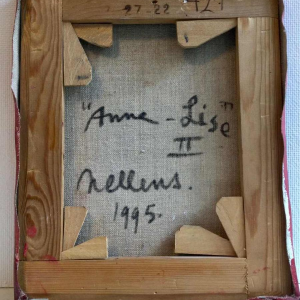 27-22
"Anne-Lise"
II
Nellens.
1995.